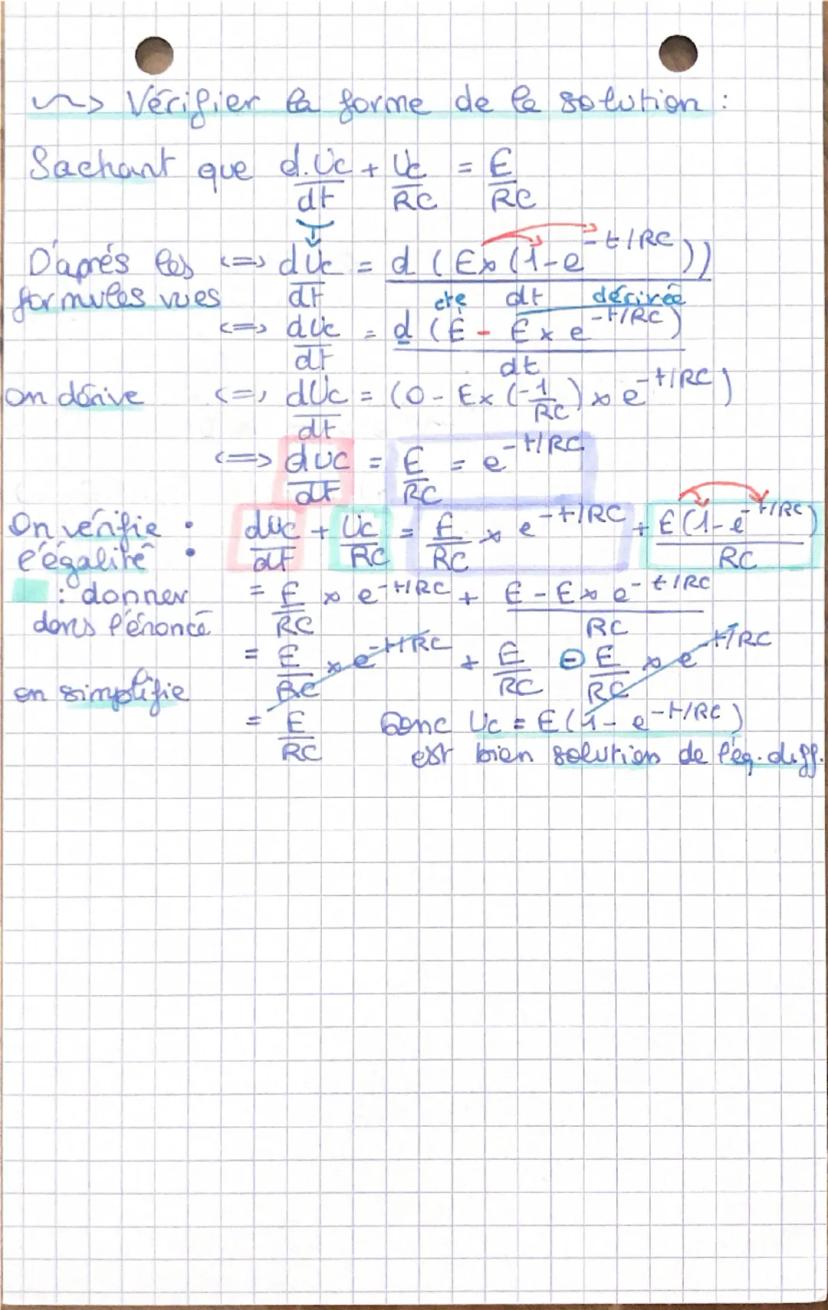 ~> Vérifier la forme de la solution :
Sachant que d.Uc/dt + Uc/RC = E/RC
D'aprés les formules vues <=> dUc/dt = d(E×(1-e^-t/RC))/dt
cte dérivée
<=> dUc/dt = d(E - E×e^-t/RC)/dt
on dérive <=> dUc/dt = (0 - E×(-1/RC)×e^-t/RC)
<=> duc/dt = E/RC = e^-t/RC
On vérifie l'égalité : duc/dt + Uc/RC = E/RC × e^-t/RC + E(1-e^-t/RC)/RC
: donner dans l'énoncé = E/RC × e^-t/RC + E-E×e^-t/RC/RC
= E/RC × e^-t/RC + E/RC - E/RC × e^-t/RC
on simplifie = E/RC Donc Uc = E(1-e^-t/RC)
est bien solution de l'éq.diff.